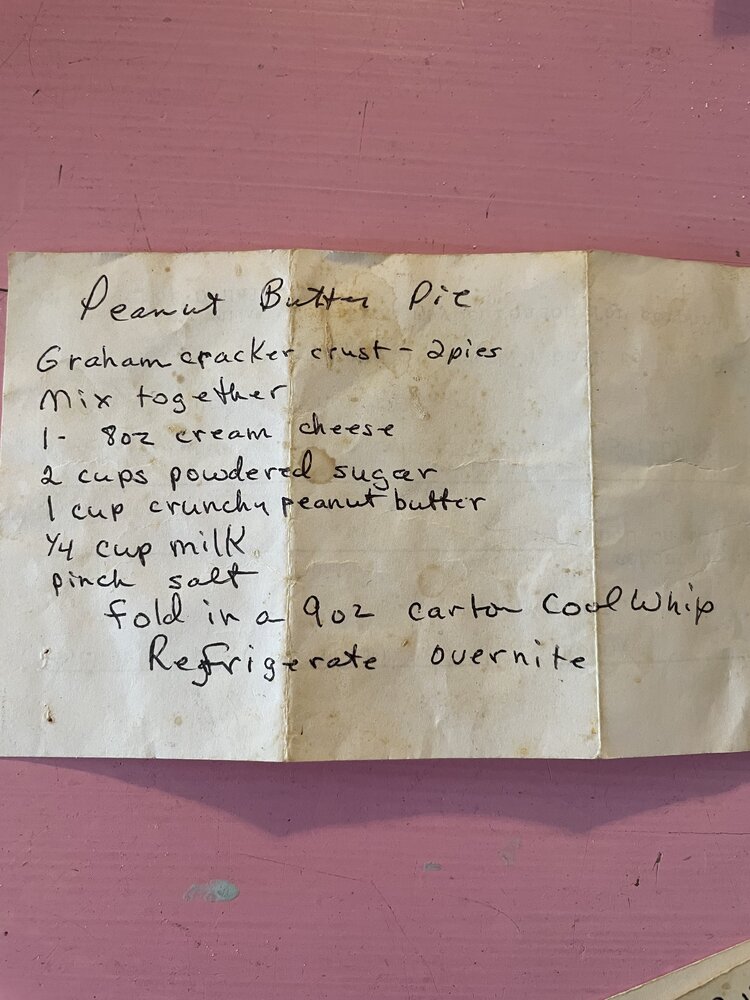 Peanut Butter Pie
Graham cracker crust - 2 pies
Mix together
1- 8oz cream cheese
2 cups powdered sugar
1 cup crunchy peanut butter
1/4 cup milk
pinch salt
fold in a 9oz carton Cool Whip
Refrigerate overnite